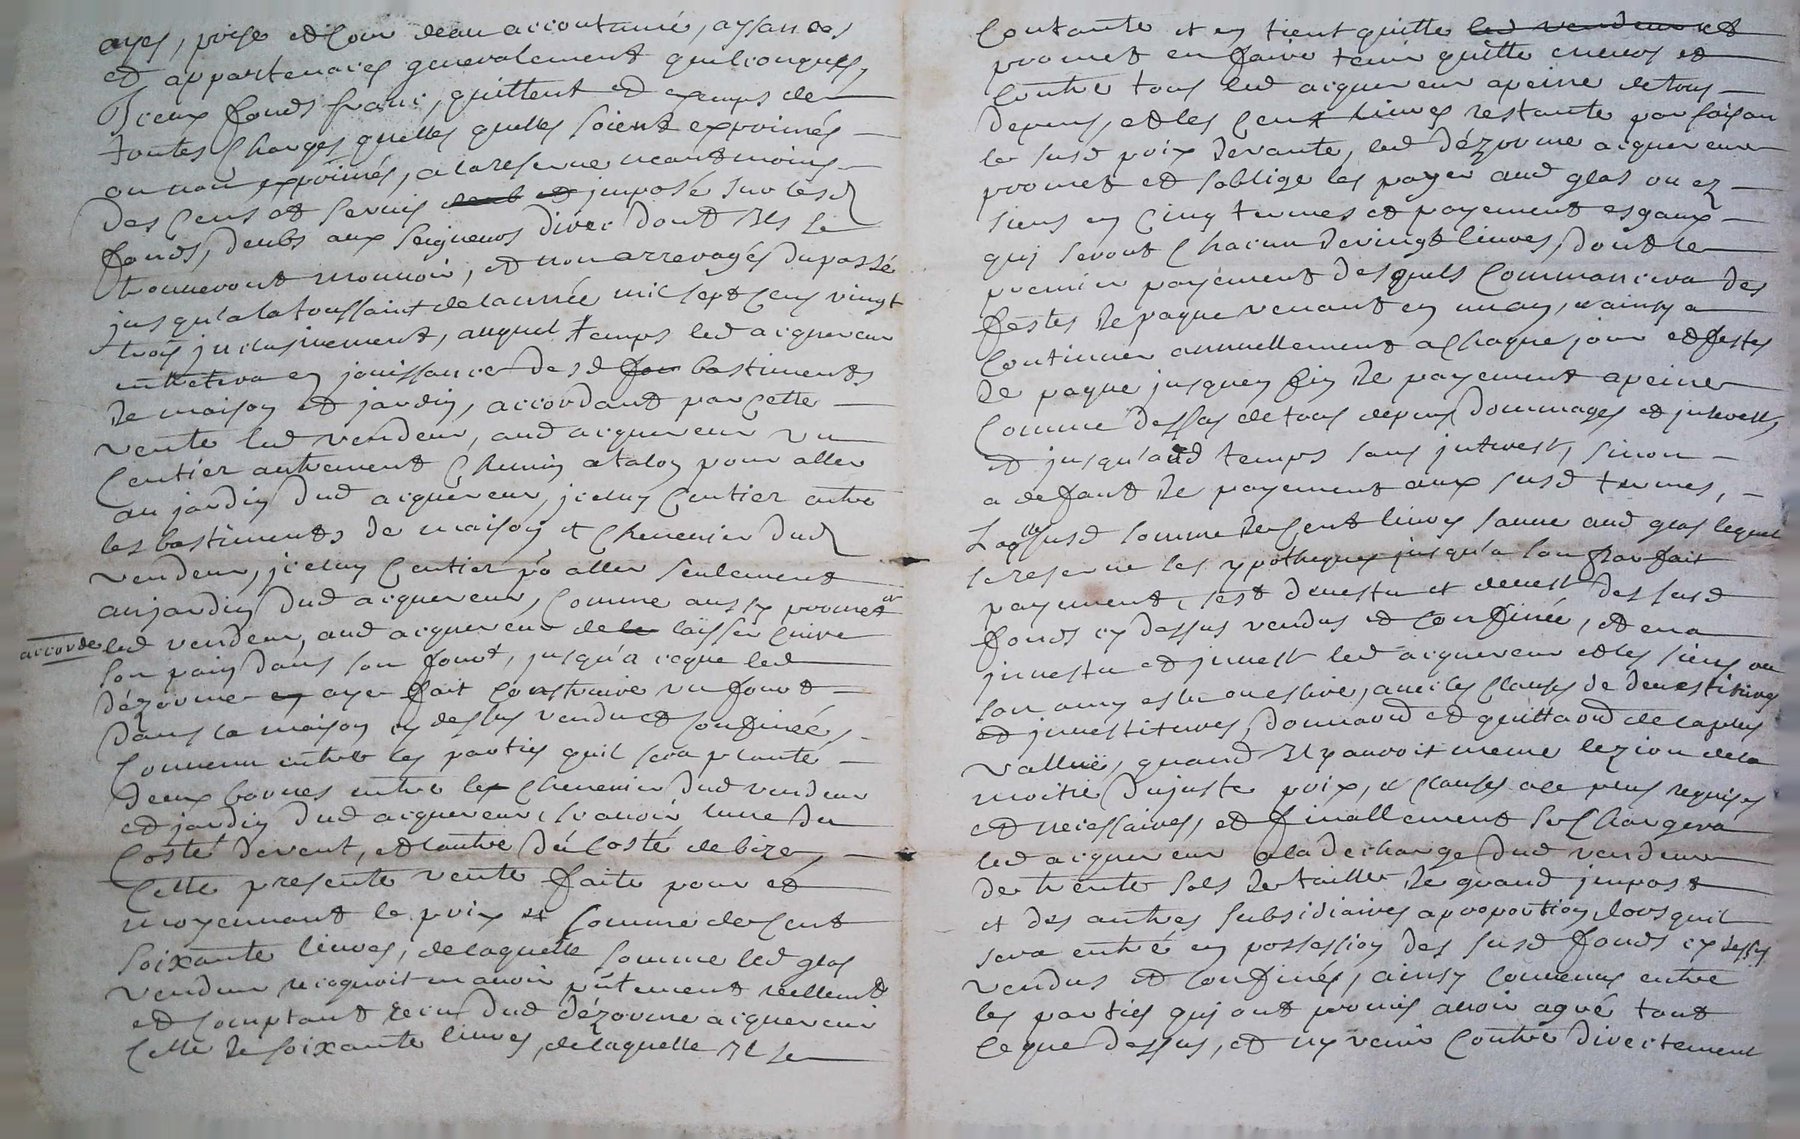 ayes, prise et cour deau accoutumé, aysances
et appartenaces generalement quelconques,
Iceux fonds franc, quittent et exemps de
toutes Charges quelles quelles soient exprimés
ou non exprimés, a la reserve neantmoins
des Cens et servis deub et imposé sur lesd
fonds, deubs aux seigneurs direc dont Ils se
trouveront mouvoir, et non arrerages du passé
jusqu'a la toussaint de lannée mil sept Cens vingt
trois jnclusivement, auquel temps led acquereur
entrera en jouissance desd fon bastiments
de maison et jardin, accordant par cette
vente led vendeur, aud acquereur un
Centier autrement Chemin atalon pour aller
au jardin dud acquereur, jceluy Centier entre
les bastiments de maison et Chenevier dud
vendeur, jceluy Centier po aller seulement
au jardin dud acquereur, Comme aussy promet
accorde led vendeur, aud acquereur de le laisser cuire
son pain dans son fourt, jusqu'a ceque led
dézorme en aye fait Construire un fourt
dans la maison cy dessus vendu et confinée,
Convenu entre les parties quil sera planté
deux bornes entre les Chenevier dud vendeur
et jardin dud acquereur, scavoir lune du
Costé devent, et lautre du Costé de bize,
Cette presente vente faite pour et
moyennant le prix et somme de Cent
soixante livres, de laquelle somme led glas
vendeur recognoit en avoir pntement reellemt
et comptant recu dud dézorme acquereur
Celle de soixante livres, de laquelle Il se
Contante et en tient quitte led vendeur et
promet en faire tenir quitte envers et
Contre tous led acquereur apeine de tous
depens, et les Cent livres restante parfaisan
le susd prix de vante, led dézorme acquereur
promet et soblige les payer aud glas ou ez
siens en Cinq termes et payement esgaux
quj seront Chacun de vingt livres, dont le
premier payement desquels Commancera des
festes de paque venant en un an, et ainsy a
Continuer annuellement a Chaque jour et festes
de paque jusquen fin de payement apeine
Comme dessus de tous depens dommages et jnterests,
et jusqu'aud temps sans jnterest, sinon
a defaut de payement aux susd termes,
Laqlle susd somme de Cent livres sauve aud glas lequel
se reserve les ypotheques jusqu'a son parfait
payement, sest devestu et devest des susd
fonds cy dessus vendus et Confinée, et en a
jnvestu et jnvest led acquereur et les siens ou
son amy eslu ou eslire, avec les Clauses de devestitures
et jnvestitures, donnand et quittand de la plus
vallüe, quand Il y auroit meme lezion de la
moitié du juste prix, et Clauses a ce plus requises
et necessaires, et finallement se Chargera
led acquereur a la decharge dud vendeur
de trente sols de taille de grand jmpost
et des autres subsidiaires a proportion, lors quil
sera entré en possession des susd fonds cy dessus
vendus et Confinés, ainsy Convenus entre
les parties quj ont promis avoir agré tout
ce que dessus, et ny venir Contre directement